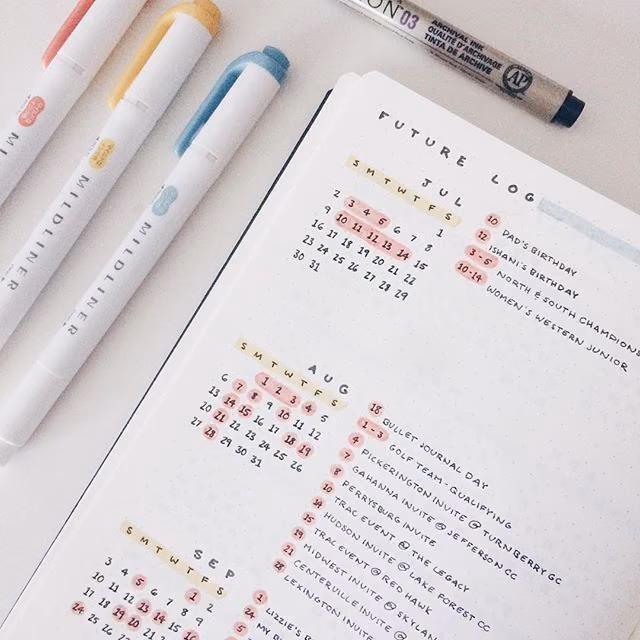 MILDLINER
MILDLINER
MILDLINER
ON 03
ARCHIVAL INK
QUALITÉ D'ARCHIVAGE
TINTA DE ARCHIVE
AP
FUTURE LOG
JUL
S M T W T F S
1
2 3 4 5 6 7 8
9 10 11 12 13 14 15
16 17 18 19 20 21 22
23 24 25 26 27 28 29
30 31
10 DAD'S BIRTHDAY
12 ISHANI'S BIRTHDAY
3-5 NORTH & SOUTH CHAMPION
10-14 WOMEN'S WESTERN JUNIOR
AUG
S M T W T F S
1 2 3 4 5
6 7 8 9 10 11 12
13 14 15 16 17 18 19
20 21 22 23 24 25 26
27 28 29 30 31
BULLET JOURNAL DAY
1-3 GOLF TEAM - QUALIFYING
4 PICKERINGTON INVITE @ TURNBERRY GC
7 GAHANNA INVITE @ JEFFERSON CC
8 PERRYSBURG INVITE
10 TRAC EVENT @ THE LEGACY
14 HUDSON INVITE @ LAKE FOREST CC
15 TRAC EVENT @ RED HAWK
19 MIDWEST INVITE @ SKYLAN
21 CENTERVILLE INVITE @
28 LEXINGTON INVITE
SEP
S M T W T F S
1 2
3 4 5 6 7 8 9
10 11 12 13 14 15 16
17 18 19 20
24
1 LIZZIE'S B
24 MY B